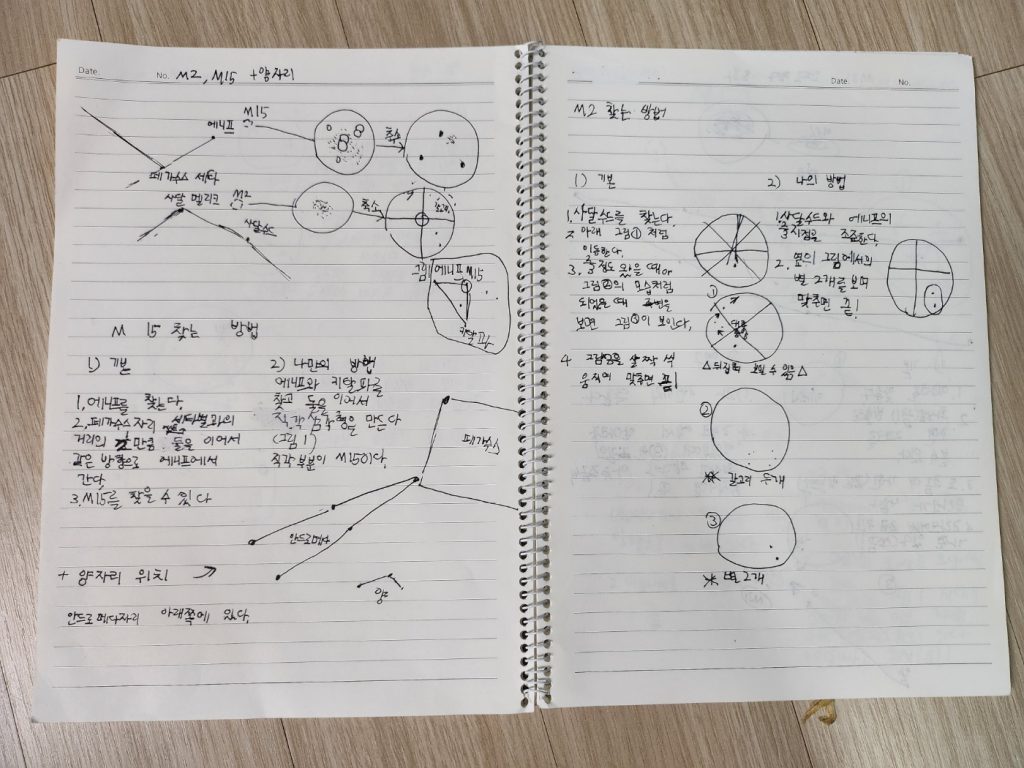 Date
No. M2, M15 +양자리
M15
에니프
축소
페가수스 세타
사달 멜리크 M2
축소
사달수드
그림1 에니프 M15
키탈파
M 15 찾는 방법
1) 기본
1. 에니프를 찾는다.
2. 페가수스자리 세타별과의
거리의 만큼 둘을 이어서
같은 방향으로 에니프에서
간다.
3. M15를 찾을 수 있다
2) 나만의 방법
에니프와 키탈파를
찾고 둘을 이어서
직각 삼각형을 만든다
(그림1)
직각 부분이 M15이다.
페가수스
안드로메다
+ 양자리 위치 →
양
안드로메다자리 아래쪽에 있다.
Date
No.
M2 찾는 방법
1) 기본
1. 사달수드를 찾는다.
2. 아래 그림① 처럼
이동한다.
3. 정도 왔을 때
그림②의 모습처럼
되었을 때
보면 그림③이 보인다.
4. 살짝 씩
움직여 맞추면 끝!
①
△뒤집혀 보일 수 있음△
②
※ 두개
③
※ 별 2개
2) 나의 방법
1. 사달수드와 에니프의
중지점을 조준한다.
2. 옆의 그림에서의
별 2개를 보며
맞추면 끝!